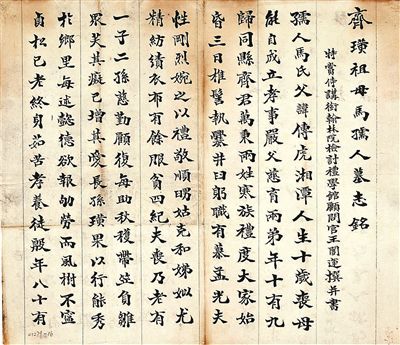 齊璜祖母馬孺人墓志銘
特賞侍講銜翰林院檢討禮學館顧問官王闓運撰并書
孺人馬氏父諱傳虎湘潭人生十歲喪母
能自成立孝事嚴父慈育兩弟年十有九
歸同縣齊君萬秉兩姓寒族禮度大家始
昏三日椎髻執爨井臼躬職有慕孟光夫
性剛烈婉之以禮敬順明姑克和娣姒尤
精紡績衣布有餘服貧四紀夫喪乃老有
一子二孫慈勤顧復每助秋穫並負雛
眾笑其癡己增其愛長孫璜果以行能秀
於鄉里每述懿德欲報劬勞而風樹不寧
貞松已老終身茹苦孝養徒殷年八十有